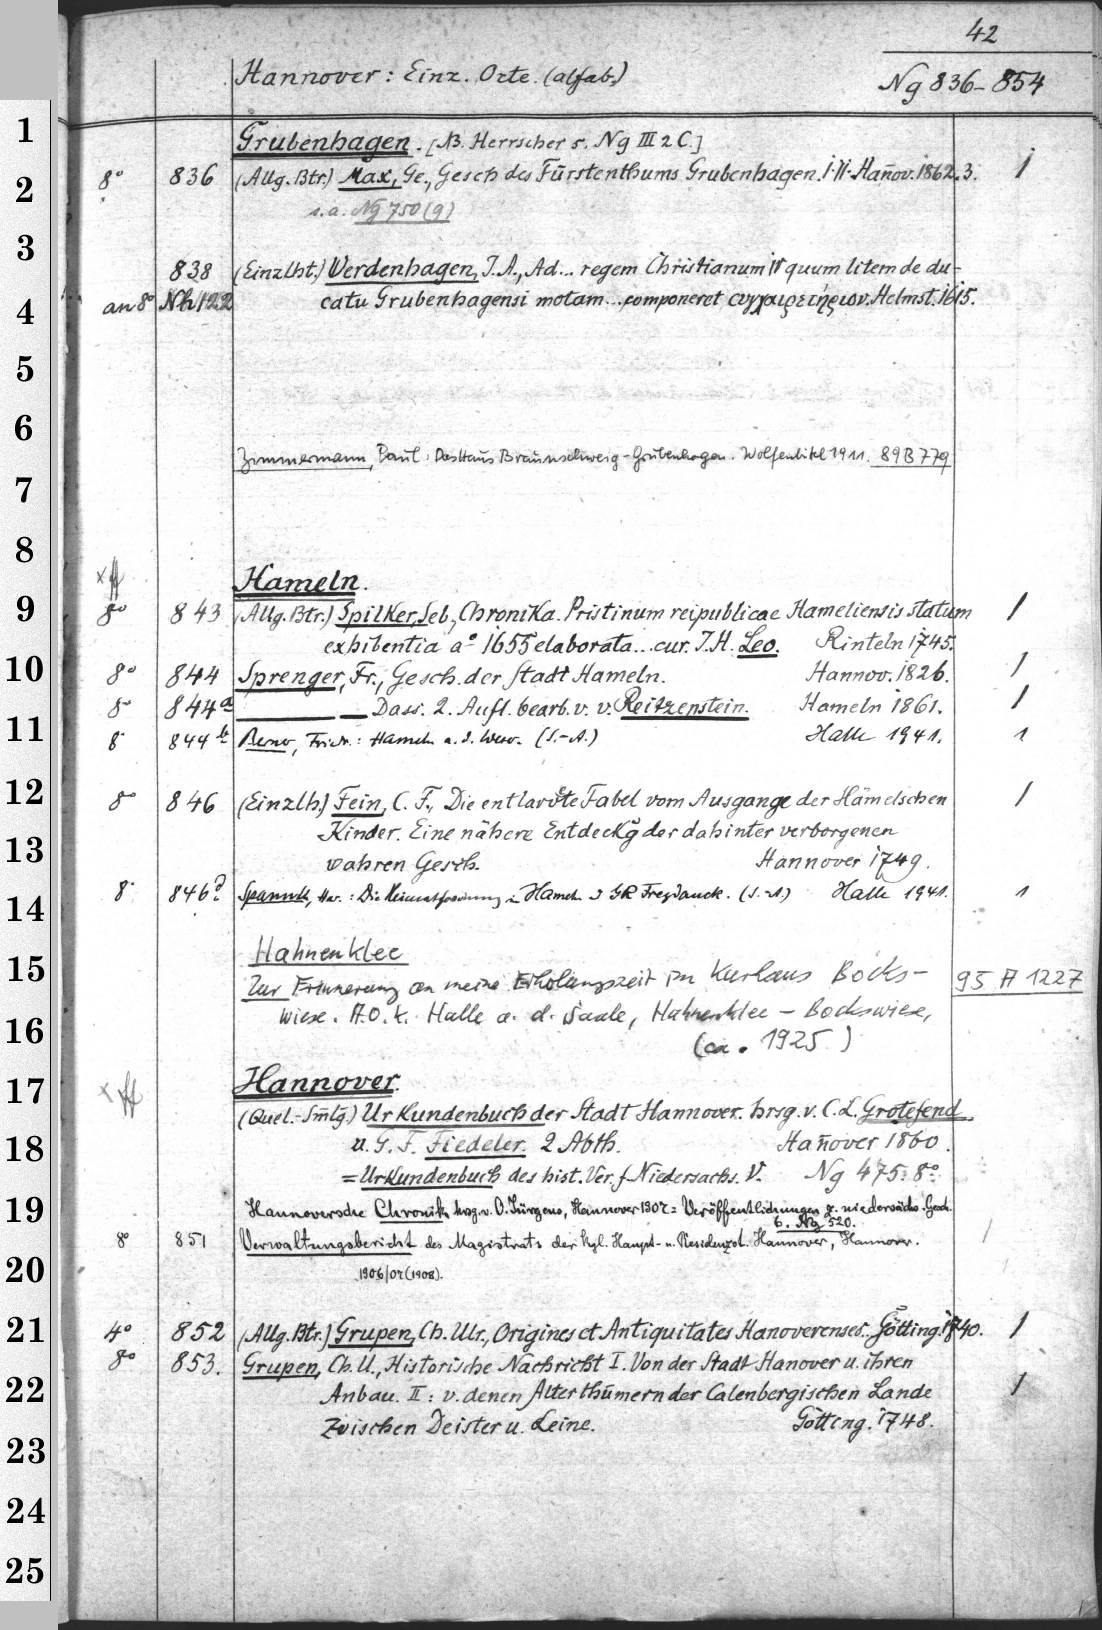 42
Hannover: Einz. Orte. (alfab.)
Ng 836-854
1
Grubenhagen. [NB. Herrscher s. Ng III 2 C.]
2
8° 836 (Allg. Btr.) Max, Ge., Gesch des Fürstenthums Grubenhagen. I.II. Hañov. 1862.3. 1
s. a. Ng 750 (9)
3
838 (Einzlht.) Werdenhagen, J. A., Ad... regem Christianum IV quum litem de du-
4
an 8° Nh 122 catu Grubenhagensi motam... componeret Helmst. 1615.
5
6
Zimmermann, Paul: Das Haus Braunschweig-Grubenhagen. Wolfenbüttel 1911. 89 B 779
7
8
Hameln.
9
8° 843 (Allg. Btr.) Spilker, Seb., Chronika. Pristinum reipublicae Hameliensis statum 1
exhibentia a° 1655 elaborata... cur. J. H. Leo. Rinteln 1745.
10
8° 844 Sprenger, Fr., Gesch. der Stadt Hameln. Hannov. 1826. 1
8° 844a Dass. 2. Aufl. bearb. v. v. Reitzenstein. Hameln 1861. 1
11
8° 844b Friedr.: Hameln a. d. Weser. (S.-A.) Halle 1941. 1
12
8° 846 (Einzlh.) Fein, C. F., Die entlarvte Fabel vom Ausgange der Hämelschen 1
Kinder. Eine nähere Entdeckg der dahinter verborgenen
13
wahren Gesch. Hannover 1749.
14
8° 846 Spanuth, : Die in Hameln (S.-A.) Halle 1941. 1
Hahnenklee
15
Zur Erinnerung an meine Erholungszeit im Kurhaus Bocks- 95 A 1227
16
wiese. A.O.K. Halle a. d. Saale, Hahnenklee - Bockswiese,
(ca. 1925)
17
Hannover.
(Quel.-Smlg.) Urkundenbuch der Stadt Hannover. hrsg. v. C. L. Grotefend
18
u. G. F. Fiedeler. 2 Abth. Hañover 1860.
= Urkundenbuch des hist. Ver. f. Niedersachs. V. Ng 475. 8°
19
Hannoversche Chronik, hrsg. v. O. Jürgens, Hannover 1907 = Veröffentlichungen z. niedersächs. Gesch.
6. Ng 520.
8° 851 Verwaltungsbericht des Magistrats der Kgl. Haupt- u. Residenzst. Hannover, Hannover.
20
1906/07 (1908).
21
4° 852 (Allg. Btr.) Grupen, Ch. Ulr., Origines et Antiquitates Hanoverenses. Götting. 1740. 1
8° 853. Grupen, Ch. U., Historische Nachricht I. Von der Stadt Hanover u. ihren
22
Anbau. II: v. denen Alterthümern der Calenbergischen Lande 1
Zwischen Deister u. Leine. Götting. 1748.
23
24
25